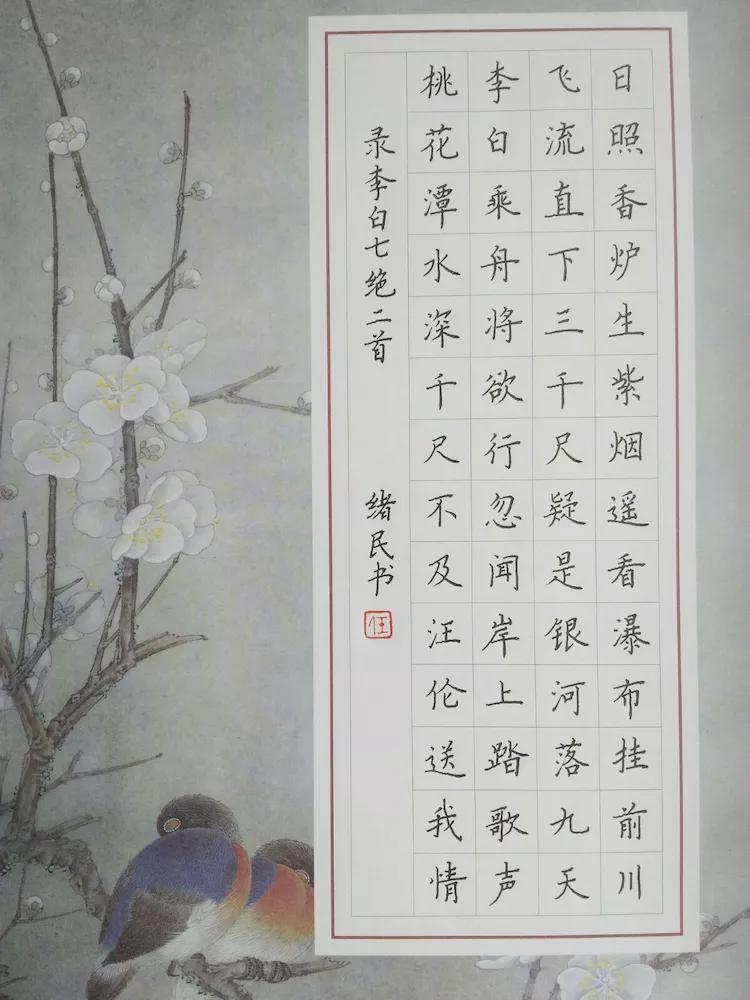 日照香炉生紫烟遥看瀑布挂前川
飞流直下三千尺疑是银河落九天
李白乘舟将欲行忽闻岸上踏歌声
桃花潭水深千尺不及汪伦送我情
录李白七绝二首 绪民书
任